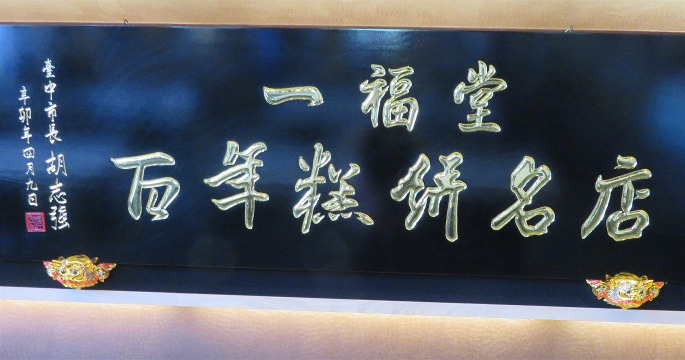 一福堂
百年糕餅名店
臺中市長 胡志強
辛卯年四月九日